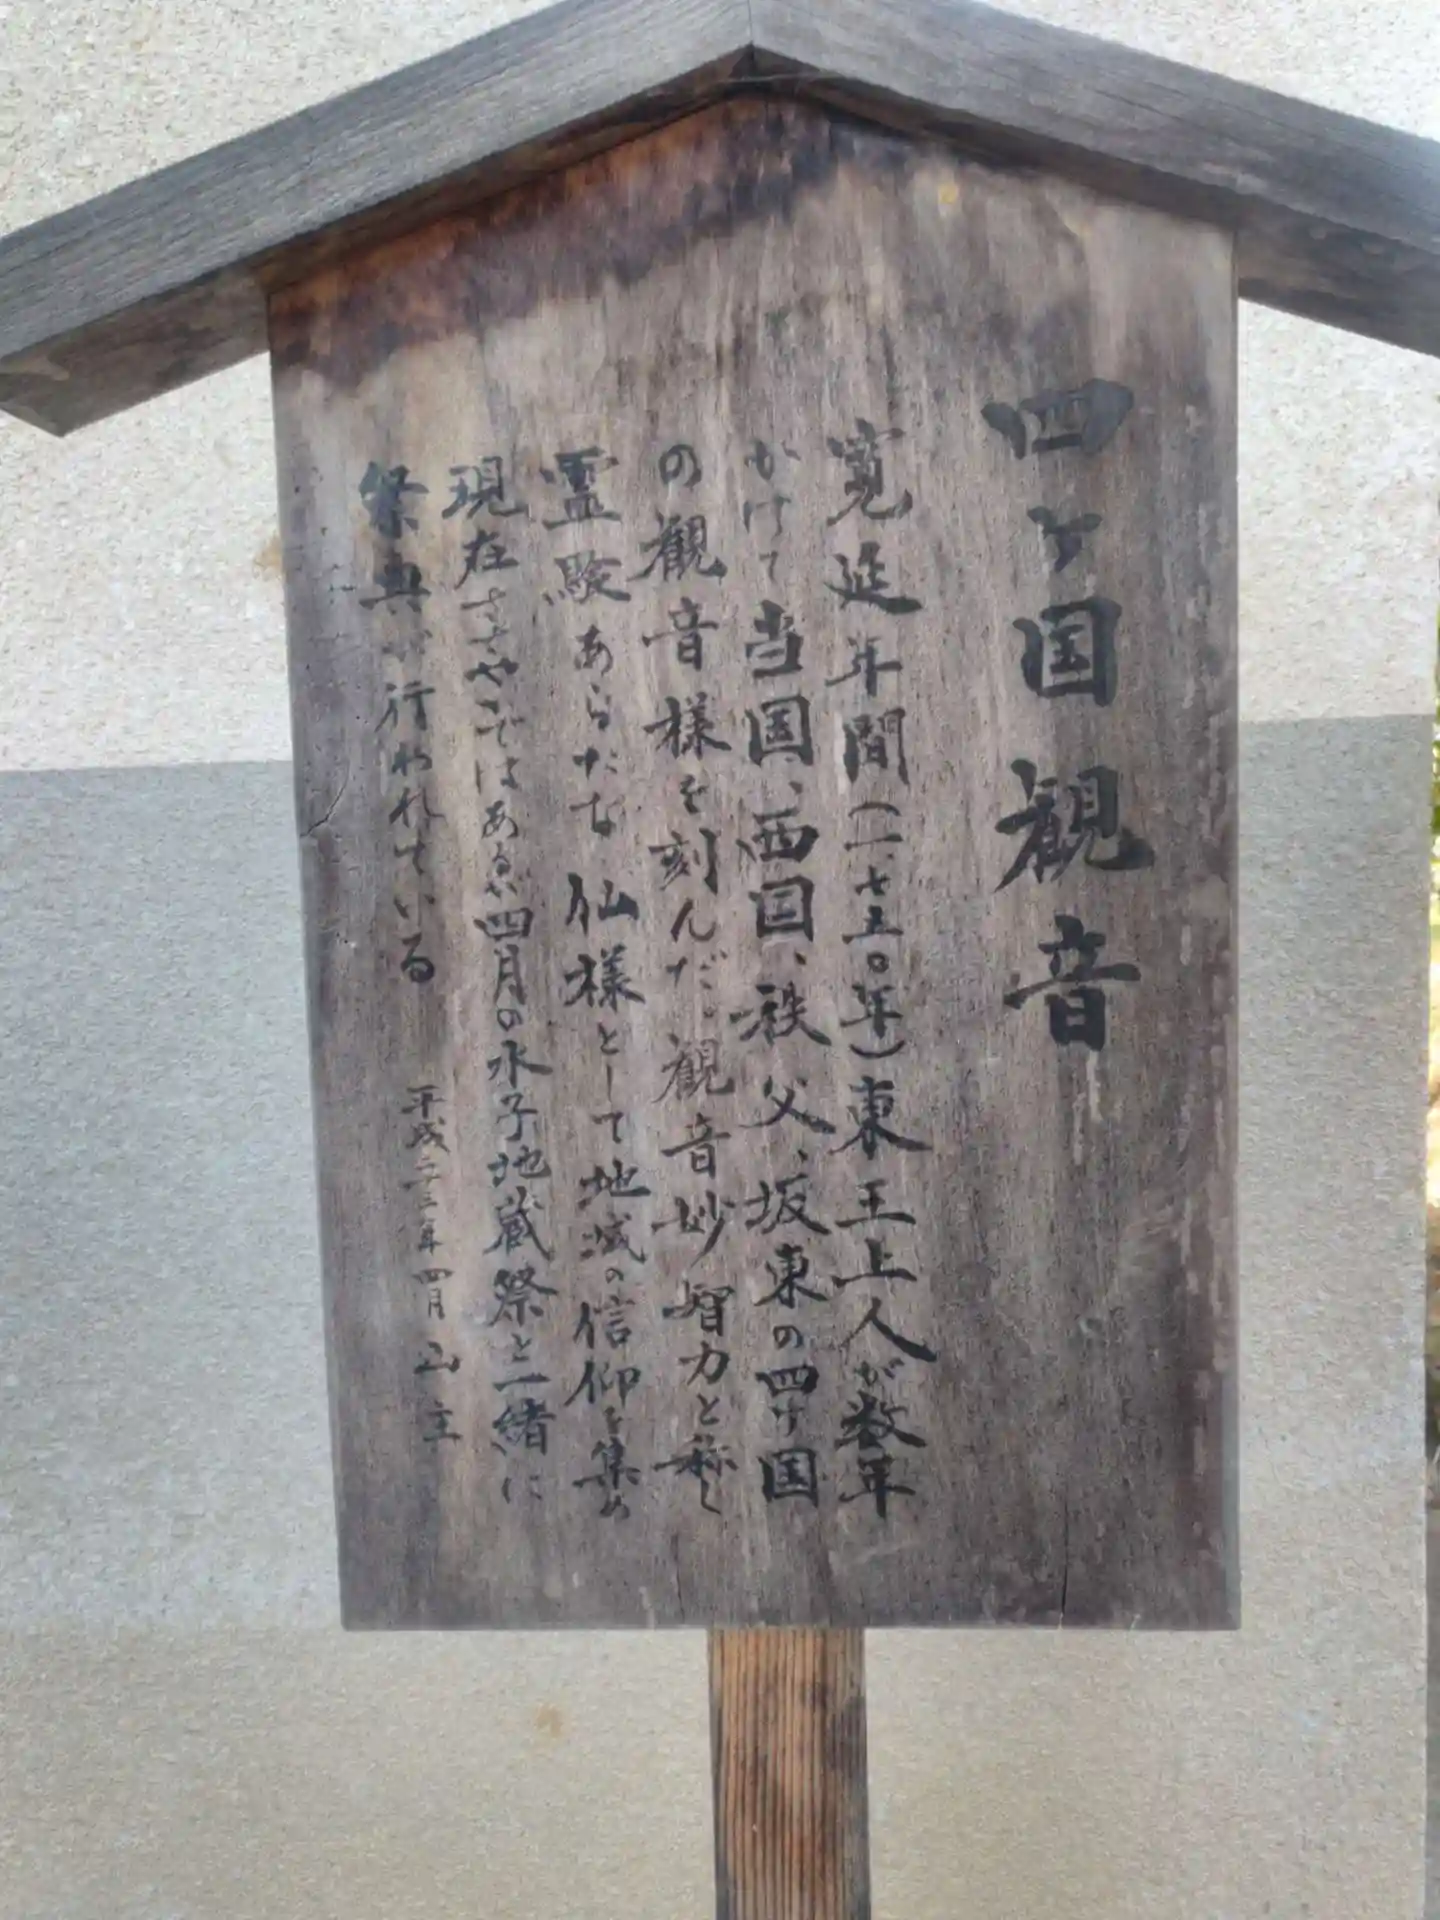 四ヶ国観音
寛延年間(一七五〇年)東王上人が数年
かけて当国、西国、秩父、坂東の四ヶ国
の観音様を刻んだ。観音妙智力と称し
霊験あらたな仏様として地域の信仰を集め
現在ささやかではあるが四月の水子地蔵祭と一緒に
祭典が行われている
平成二十三年四月 山主